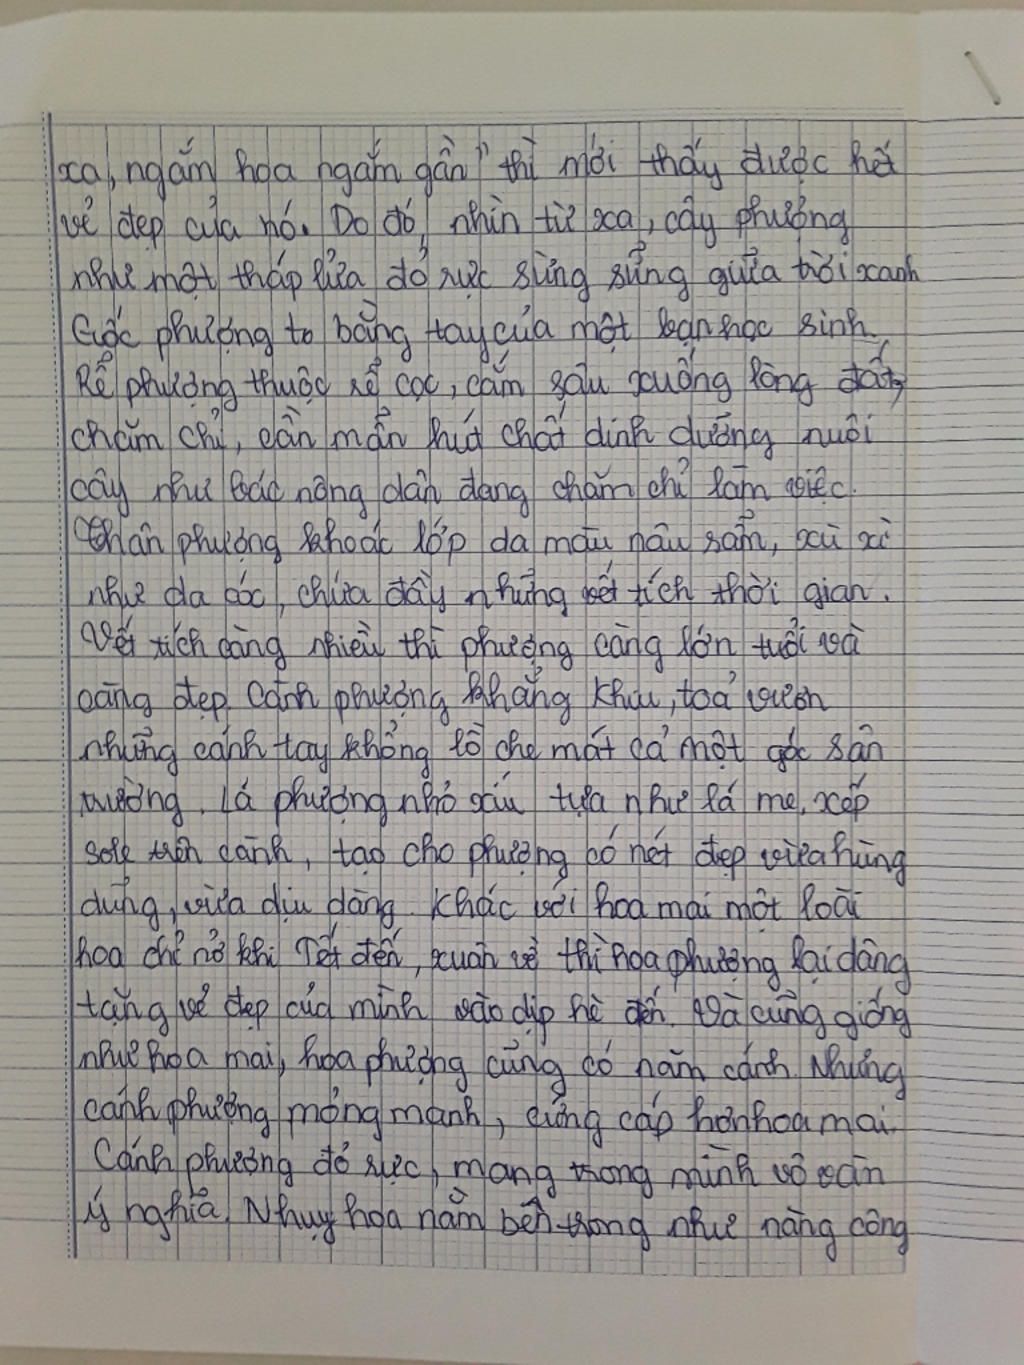 xa, ngắm hoa ngắm gần" thì mới thấy được hết
vẻ đẹp của nó. Do đó, nhìn từ xa, cây phượng
như một tháp lửa đỏ rực sừng sửng giữa trời xanh
Gốc phượng to bằng tay của một bạn học sinh.
Rễ phượng thuộc rễ cọc, cắm sâu xuống lòng đất,
chăm chỉ, cần mẫn hút chất dinh dưỡng nuôi
cây như bác nông dân đang chăm chỉ làm việc.
Thân phượng khoác lớp da màu nâu sẩm, xù xì
như da cóc, chứa đầy những vết tích thời gian.
Vết tích càng nhiều thì phượng càng lớn tuổi và
càng đẹp. Cành phượng khẳng khiu, toả vươn
những cánh tay khổng lồ che mát cả một góc sân
trường. Lá phượng nhỏ xíu tựa như lá me, xếp
sole trên cành, tạo cho phượng có nét đẹp vừa hùng
dũng, vừa dịu dàng. Khác với hoa mai một loài
hoa chỉ nở khi Tết đến, xuân về thì hoa phượng lại dâng
tặng vẻ đẹp của mình vào dịp hè đến. Và cũng giống
như hoa mai, hoa phượng cũng có năm cánh. Nhưng
cánh phượng mỏng manh, cứng cáp hơn hoa mai.
Cánh phượng đỏ rực, mang trong mình vô vàn
ý nghĩa. Nhụy hoa nằm bên trong như nàng công